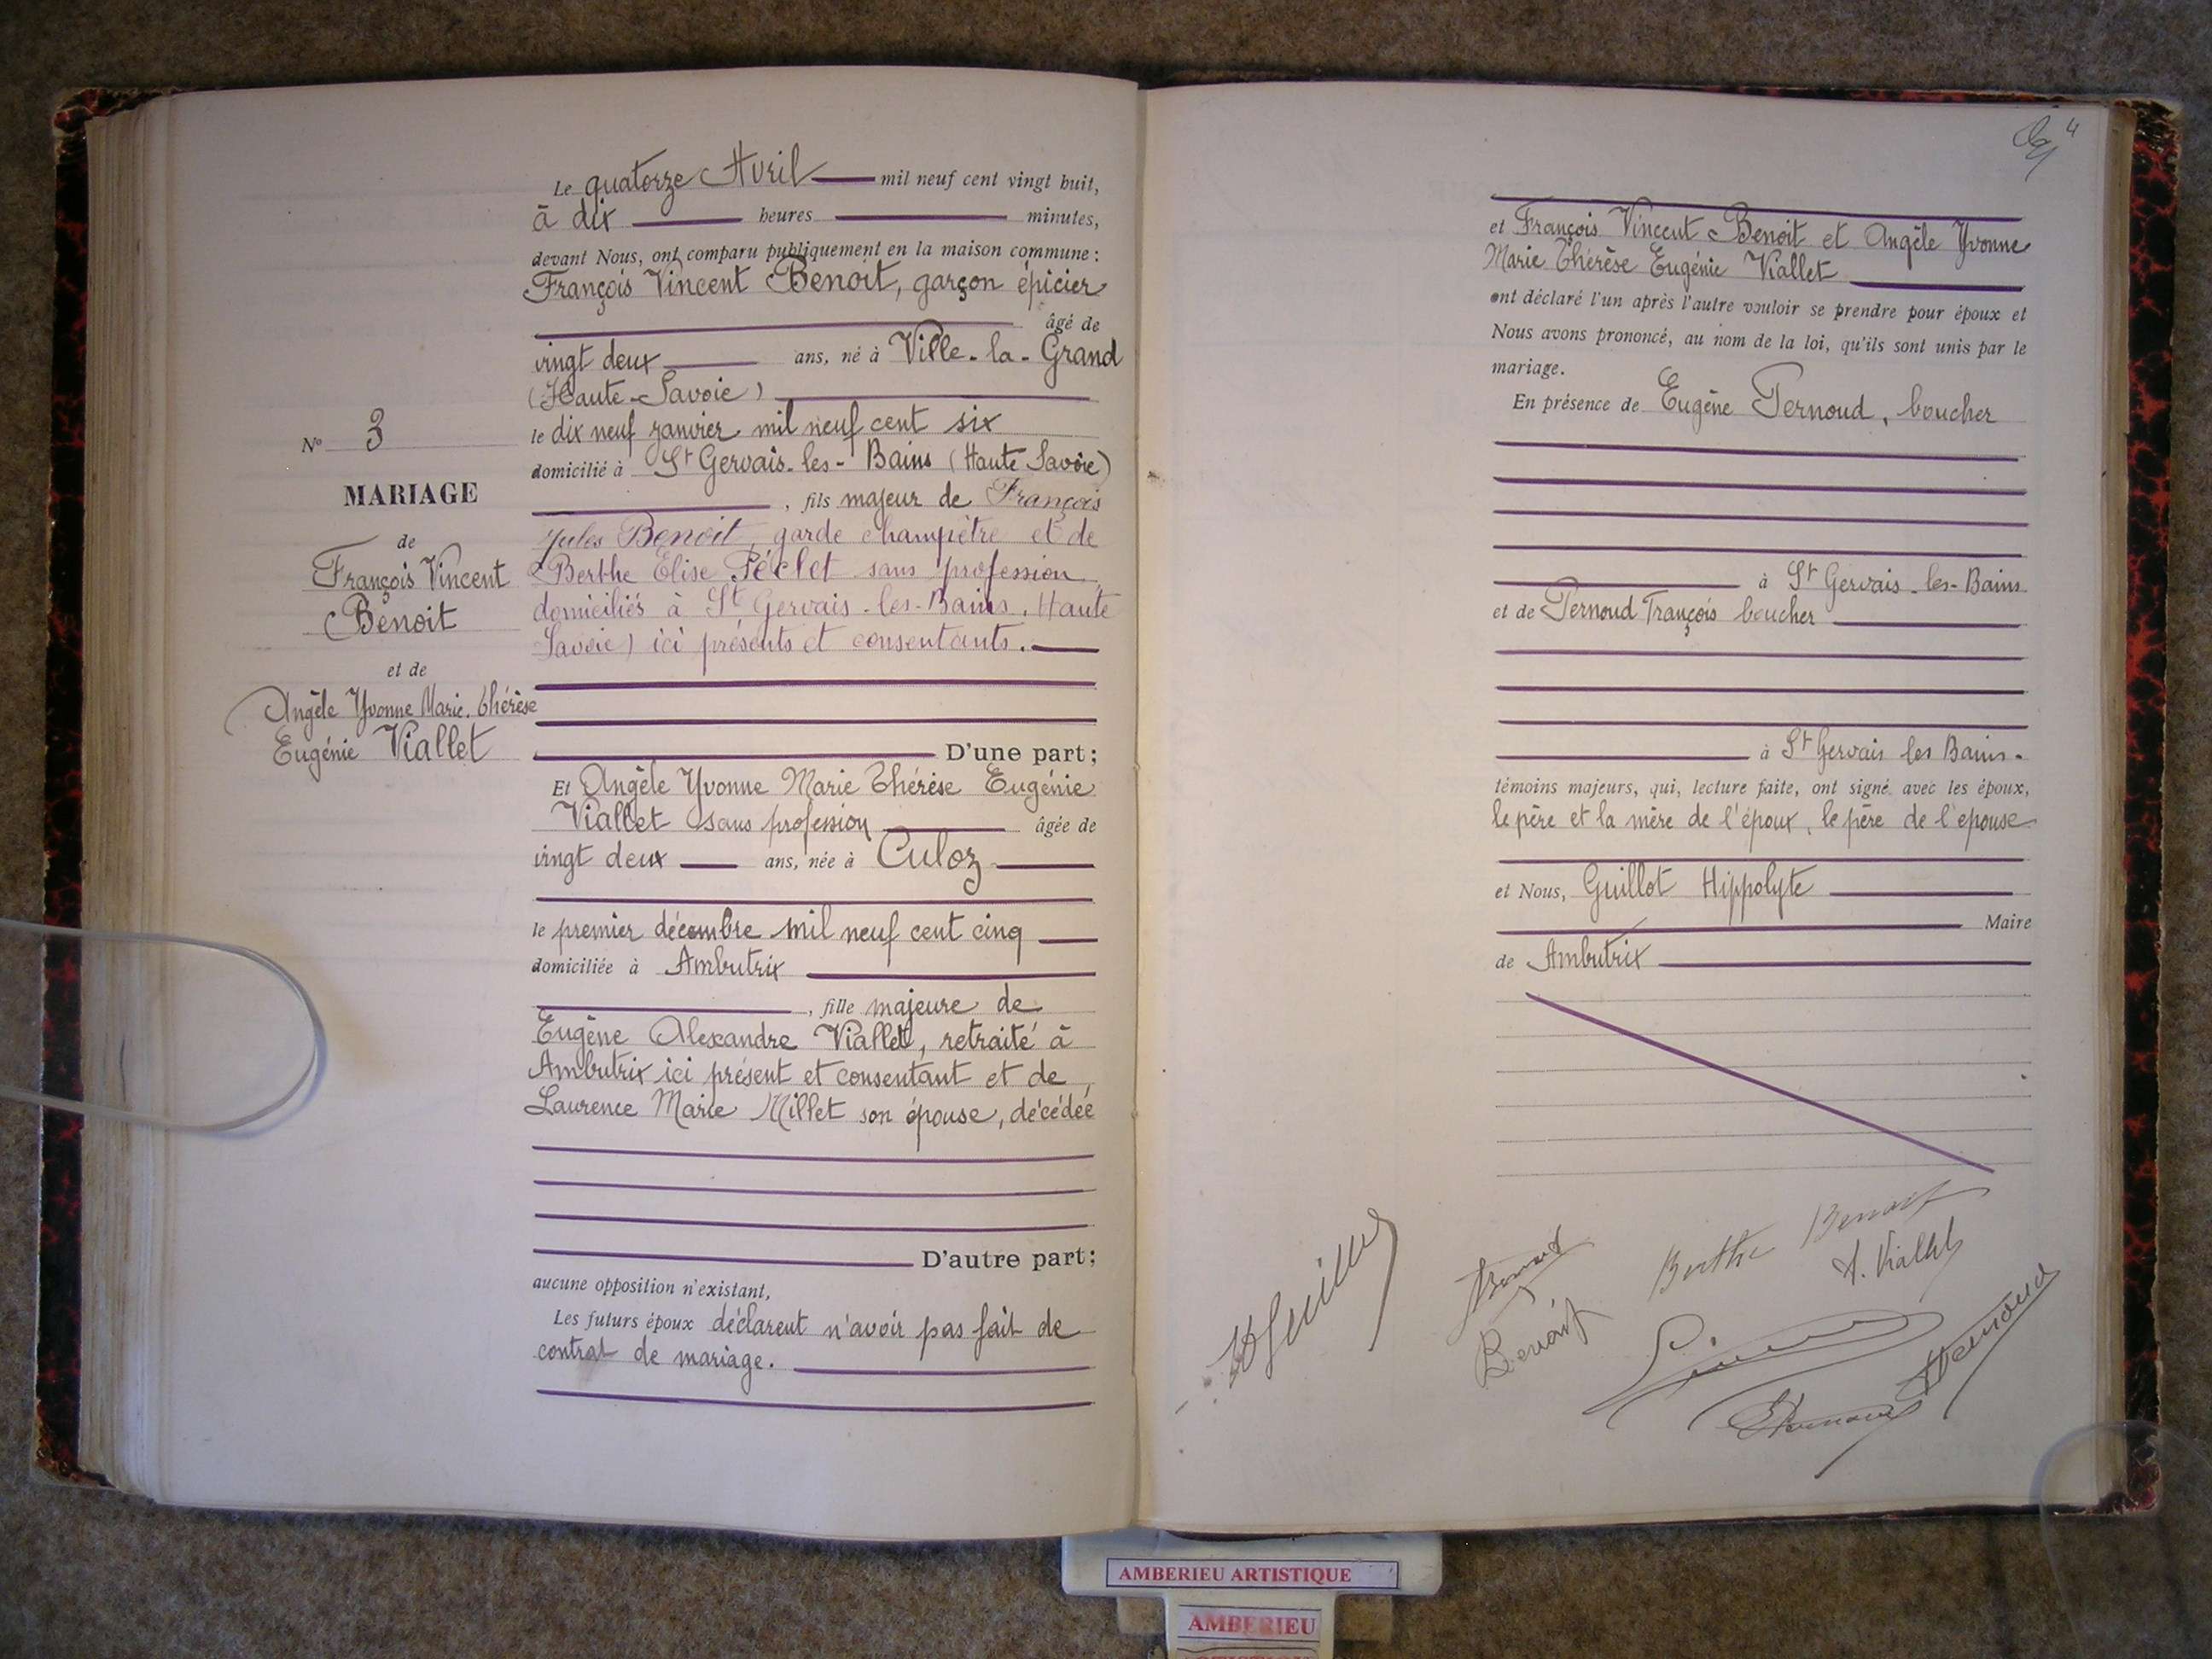 Le quatorze Avril mil neuf cent vingt huit,
à dix heures minutes,
devant Nous, ont comparu publiquement en la maison commune :
François Vincent Benoit, garçon épicier
âgé de
vingt deux ans, né à Ville-la-Grand
(Haute-Savoie)
le dix neuf janvier mil neuf cent six
domicilié à St Gervais-les-Bains (Haute Savoie)
, fils majeur de François
Jules Benoit, garde champêtre et de
Berthe Elise Péclet sans profession
domiciliés à St Gervais-les-Bains. Haute
Savoie) ici présents et consentants.
D'une part;
Et Angèle Yvonne Marie Thérèse Eugénie
Viallet sans profession âgée de
vingt deux ans, née à Culoz
le premier décembre mil neuf cent cinq
domiciliée à Ambutrix
, fille majeure de
Eugène Alexandre Viallet, retraité à
Ambutrix ici présent et consentant et de
Laurence Marie Millet son épouse, décédée
D'autre part;
aucune opposition n'existant,
Les futurs époux déclarent n'avoir pas fait de
contrat de mariage.
N° 3
MARIAGE
de
François Vincent
Benoit
et de
Angèle Yvonne Marie. Thérèse
Eugénie Viallet
4
et François Vincent Benoit et Angèle Yvonne
Marie Thérèse Eugénie Viallet
ont déclaré l'un après l'autre vouloir se prendre pour époux et
Nous avons prononcé, au nom de la loi, qu'ils sont unis par le
mariage.
En présence de Eugène Pernoud, boucher
à St Gervais-les-Bains
et de Pernoud François boucher
à St Gervais les Bains.
témoins majeurs, qui, lecture faite, ont signé avec les époux,
le père et la mère de l'époux, le père de l'epouse
et Nous, Guillot Hippolyte
Maire
de Ambutrix
Berthe Benoit
A. Viallet
Benoit
AMBERIEU ARTISTIQUE
AMBERIEU
ARTISTIQUE